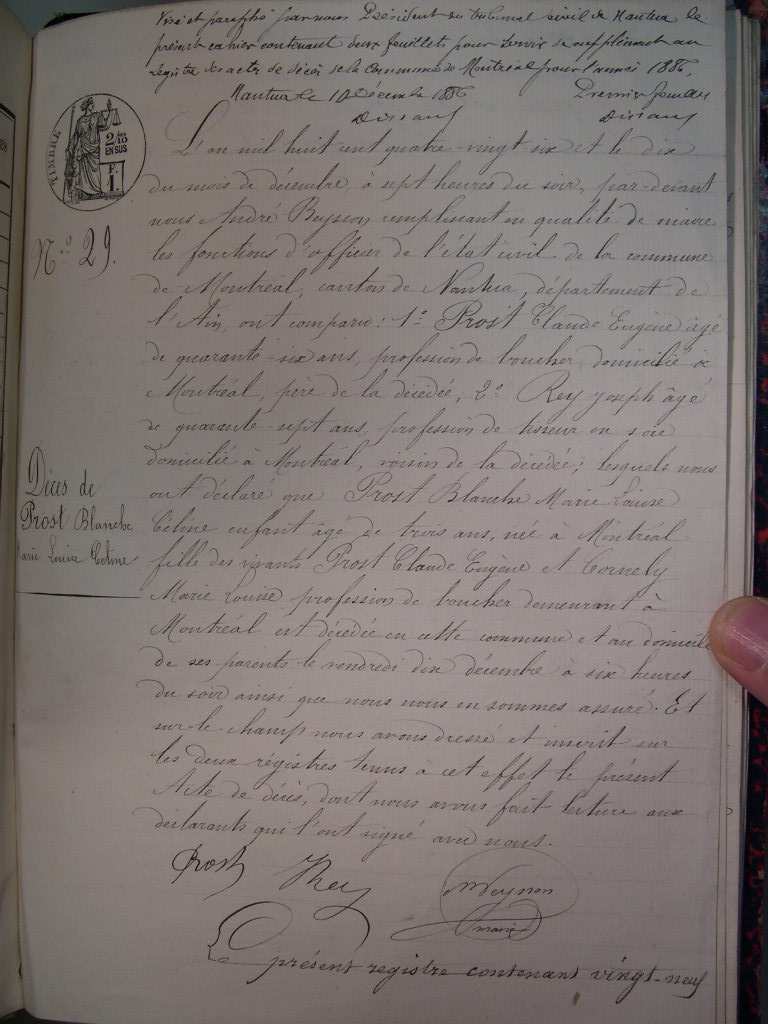 Visé et paraphé par nous Président du tribunal civil de Nantua le
présent cahier contenant deux feuillets pour servir de supplément au
registre des actes de décès de la Commune de Montréal pour l'année 1886.
Nantua le 10 Décembre 1886 Premier feuillet
TIMBRE
2/10 EN SUS
F. 1.
L'an mil huit cent quatre-vingt six et le dix
du mois de décembre à sept heures du soir, par-devant
nous André Beysson remplissant en qualité de maire
N.º 29.
les fonctions d'officier de l'état civil de la commune
de Montréal, canton de Nantua, département de
l'Ain, ont comparu: 1º Prost Claude Eugène âgé
de quarante-six ans, profession de boucher domicilié à
Montréal, père de la décédée, 2º Rey Joseph âgé
de quarante-sept ans, profession de tisseur en soie
domicilié à Montréal, voisin de la décédée; lesquels nous
Décès de
Prost Blanche
Marie Louise Celine
ont déclaré que Prost Blanche Marie Louise
Céline enfant âgé de trois ans, née à Montréal
fille des vivants Prost Claude Eugène et Cornely
Marie Louise profession de boucher demeurant à
Montréal est décédée en cette commune et au domicile
de ses parents le vendredi dix décembre à six heures
du soir ainsi que nous nous en sommes assuré. Et
sur-le-champ nous avons dressé et inscrit sur
les deux régistres tenus à cet effet le présent
Acte de décès, dont nous avons fait lecture aux
déclarants qui l'ont signé avec nous.
Prost Rey
maire
Le présent registre contenant vingt-neuf